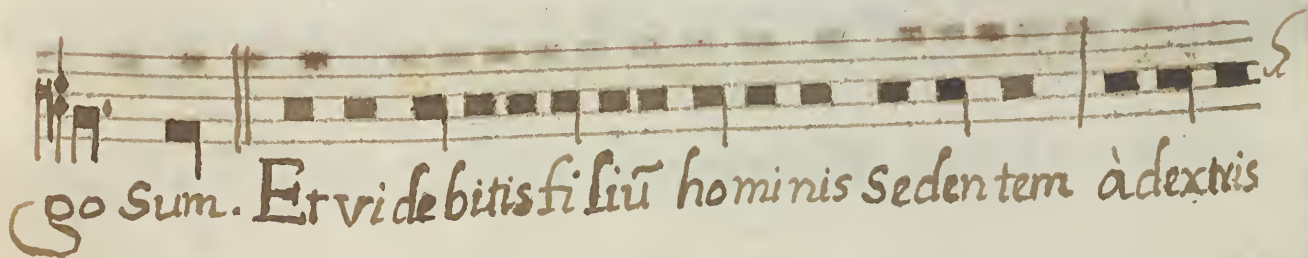 go sum. Et videbitis filiũ hominis sedentem à dextris